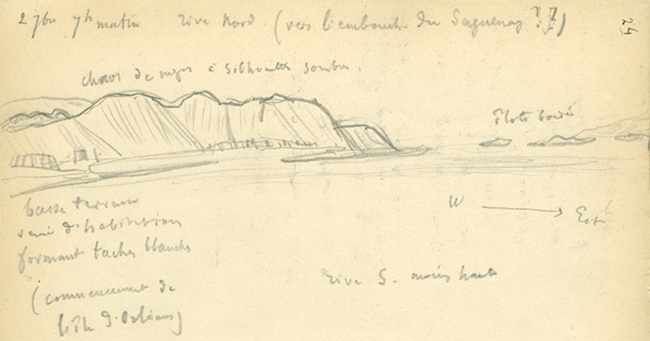 27 bre 7h matin rive Nord (vers l'embouch. du Saguenay ??)
24
chaos de neiges à silhouettes sombres.
Ilots boisés
basse terrasse
semé d'habitations
formant taches blanches
W → Est
(commencement de
l'île d'Orléans)
rive S. moins haute